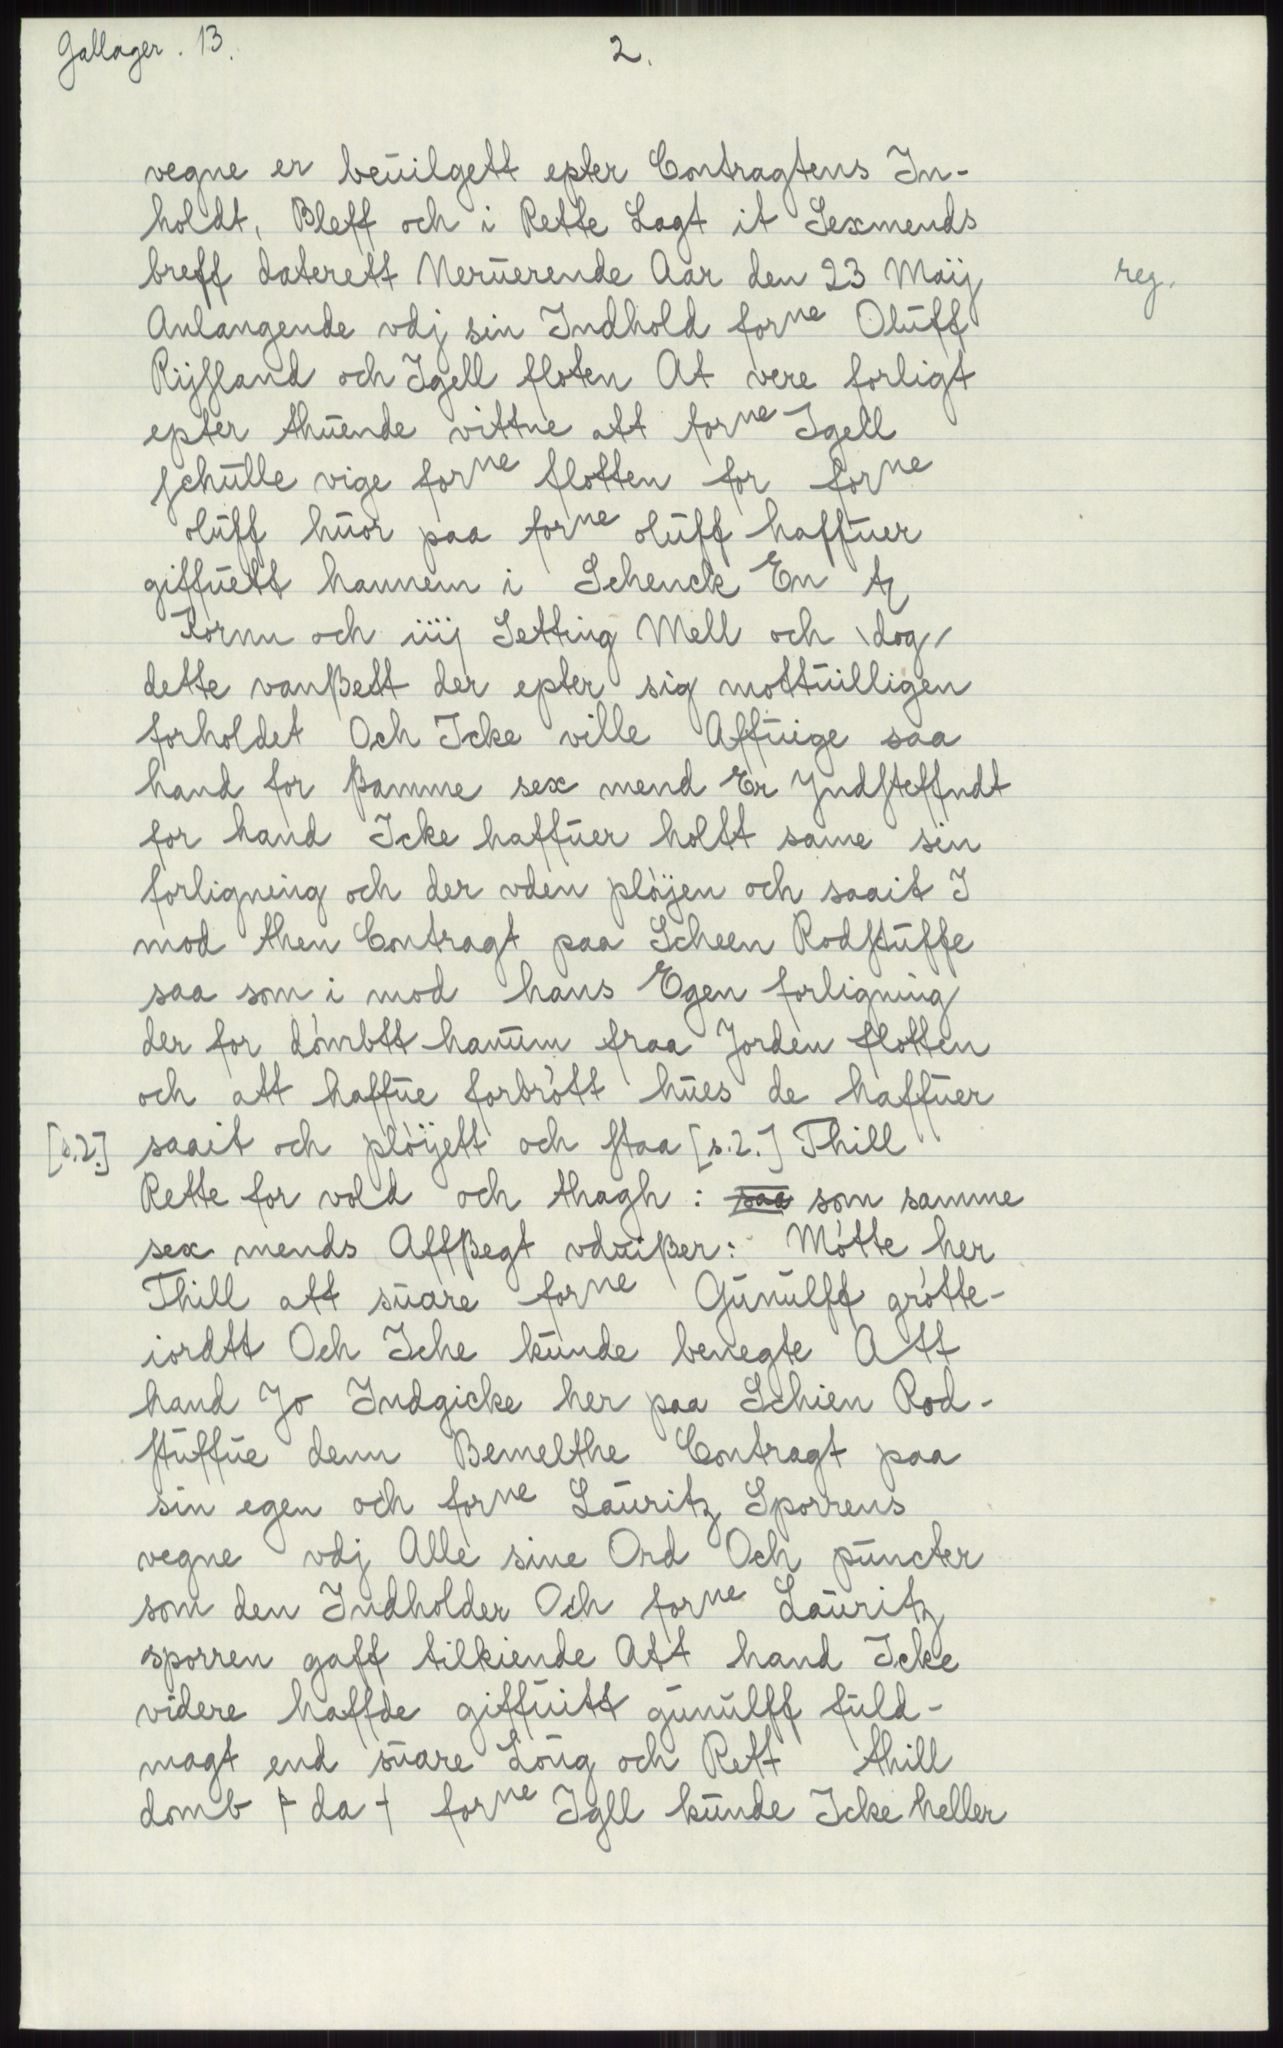 Gallager. 13.
2.
vegne er beuilgett epter Contragtens In-
holdt, Bleff och i Rette Lagt it Sexmends
breff daterett Neruerende Aar den 23 Maij
reg.
Anlangende vdj sin Indhold forne Oluff
Rijsland och Igell floten At vere forligt
epter thuende vittne att forne Igell
schulle vige forne flotten for forne
oluff huor paa forne oluff haffuer
giffuett hannem i Schenck En tz
Kornn och iiij Setting Mell och \dog/
dette vanßett der epter sig mottuilligen
forholdet Och Icke ville Affuige saa
hand for ßamme sex mend Er Jndsteffndt
for hand Icke haffuer holtt same sin
forligning och der vden pløyen och saait I
mod then Contragt paa Scheen Rodstuffe
saa som i mod hans Egen forligning
der for dómbtt hanum fraa Jorden flotten
och att haffue forbrótt hues de haffuer
[s.2.] saait och plóÿett och staa [s.2.] Thill
Rette for vold och thagh: saa som samme
sex mends Affßegt vduißer: Mótte her
Thill att suare forne Gunulff grótte-
iordtt Och Iche kunde benegte Att
hand Jo Indgicke her paa Schien Rod-
stuffue denn Bemelthe Contragt paa
sin egen och forne Lauritz Sporrens
vegne vdj Alle sine Ord Och puncter
som den Indholder Och forne Lauritz
sporren gaff tilkiende Att hand Icke
videre haffde giffuitt gunulff fuld-
magt end suare Loug och Rett thill
domb ⊦ da ⊣ forne Igll kunde Icke heller